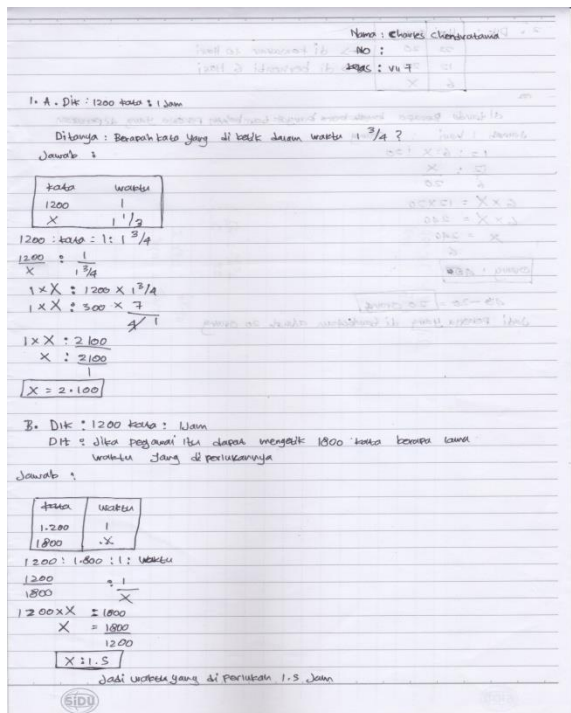 Nama : Charles Chendratama
NO :
Kelas : VII 7
1. A. Dik : 1200 kata : 1 Jam
Ditanya : Berapah kata yang di ketik dalam waktu 1 3/4 ?
Jawab :
kata waktu
1200 1
X 1 1/2
1200 : kata = 1 : 1 3/4
1200 : 1
X 1 3/4
1 x X : 1200 x 1 3/4
1 x X : 300 x 7
4 1
1 x X : 2100
X : 2100
1
X = 2.100
B. Dik : 1200 kata : 1 Jam
Dit : Jika pegawai itu dapat mengetik 1800 kata berapa lama
waktu yang diperlukannya
Jawab :
kata waktu
1.200 1
1800 .X
1200 : 1.800 : 1 : waktu
1200 : 1
1800 X
1200 x X = 1800
X = 1800
1200
X : 1.5
Jadi waktu yang di perlukan 1.5 Jam
SiDU